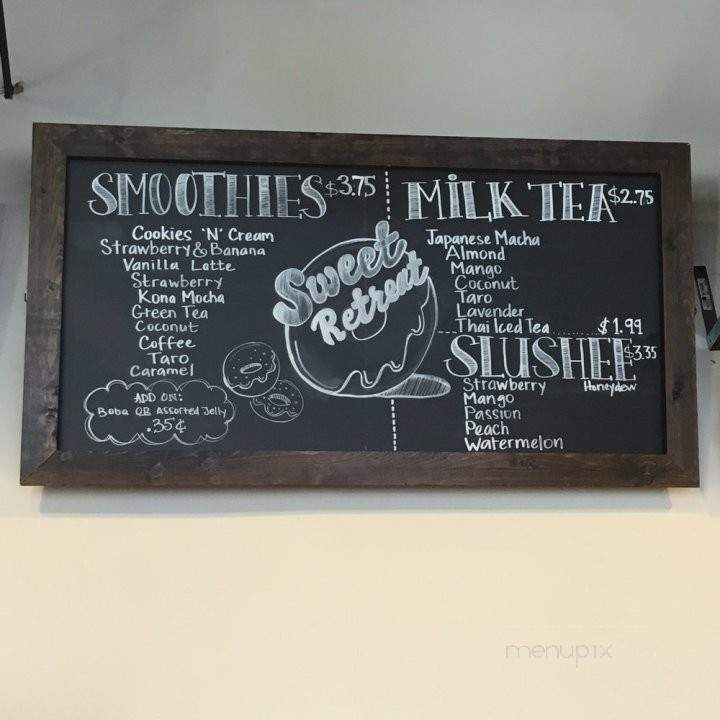 SMOOTHIES $3.75
Cookies 'N' Cream
Strawberry & Banana
Vanilla Latte
Strawberry
Kona Mocha
Green Tea
Coconut
Coffee
Taro
Caramel
ADD ON:
Boba OR Assorted Jelly
.35¢
Sweet
Retreat
MiLK TEA $2.75
Japanese Macha
Almond
Mango
Coconut
Taro
Lavender
Thai Iced Tea ......... $1.99
SLUSHEE $3.35
Strawberry Honeydew
Mango
Passion
Peach
Watermelon
menupix